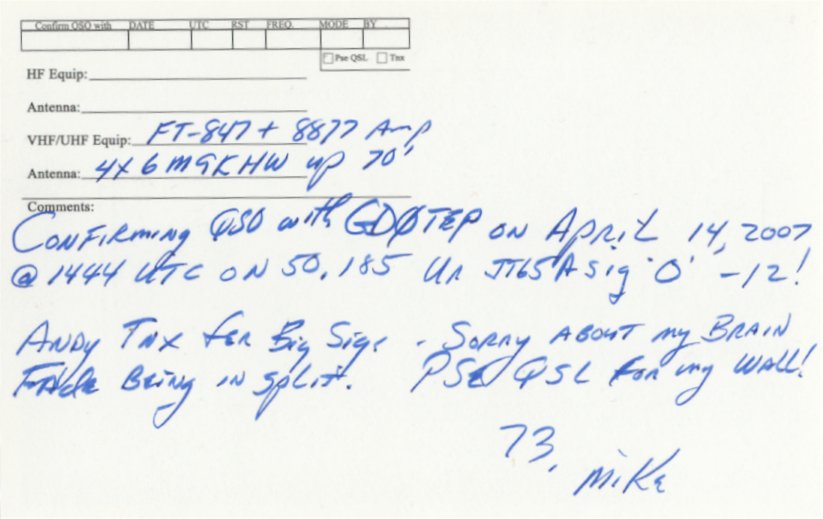 Confirm QSO with DATE UTC RST FREQ. MODE BY
Pse QSL Tnx
HF Equip:
Antenna:
VHF/UHF Equip: FT-847 + 8877 Amp
Antenna: 4x6M9KHW up 70'
Comments:
Confirming QSO with GDØTEP on April 14, 2007
@ 1444 UTC on 50.185 Ur JT65A sig 'O' -12!
Andy Tnx fer Big Sigs - Sorry about my Brain
Fade Being in split. PSE QSL for my wall!
73,
Mike